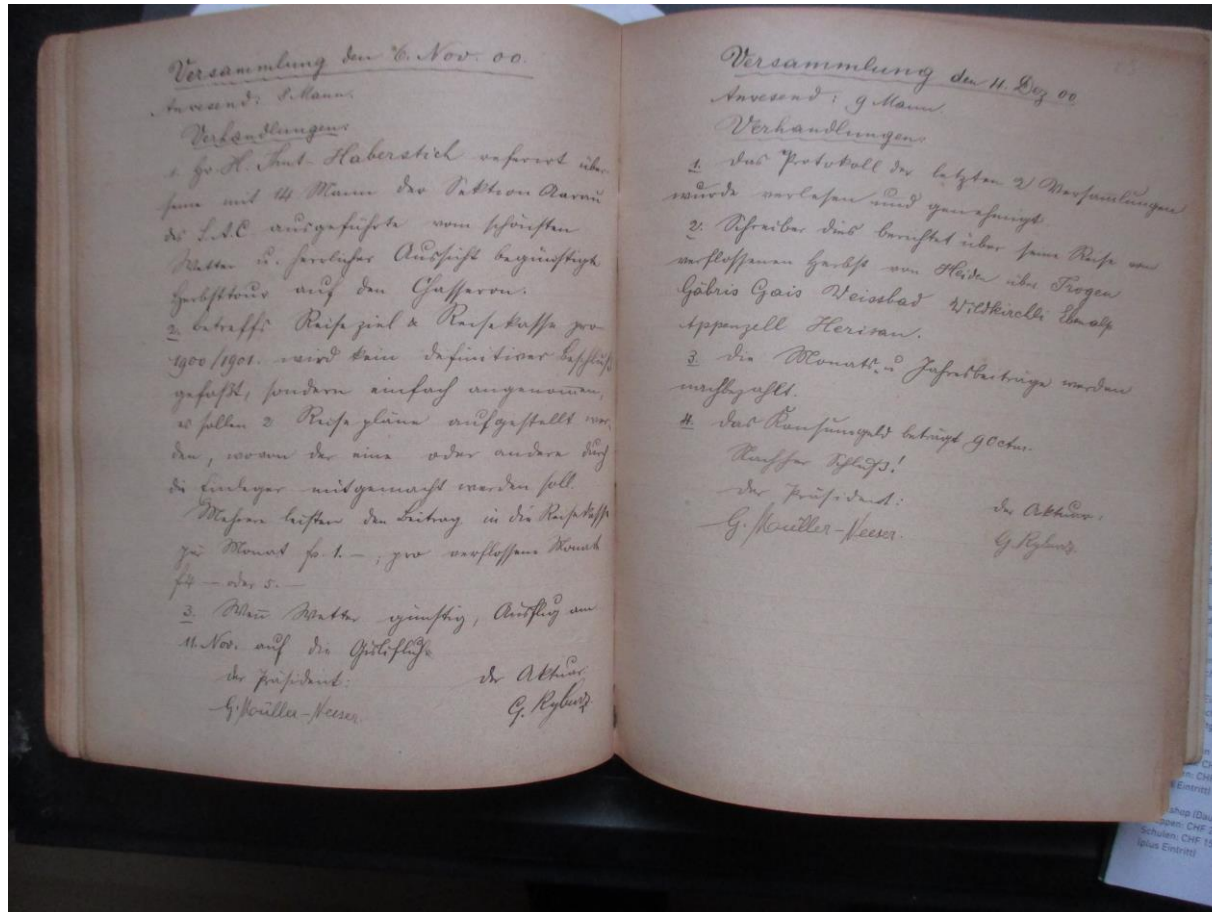 Versammlung den 6. Nov. 00.
Anwesend: 8 Mann.
Verhandlungen:
1. Hr H. Haberstich referirt über
seine mit 14 Mann der Sektion Aarau
des S.A.C ausgeführte vom schönsten
Wetter u. herrlicher Aussicht begünstigte
Herbsttour auf den Chasseron.
2. betreffs Reiseziel & Reisekasse pro
1900/1901. wird kein definitiver Beschluß
gefaßt, sondern einfach angenommen,
es sollen 2 Reisepläne aufgestellt wer-
den, wovon der eine oder andere durch
die Einleger mitgemacht werden soll.
Mehrere leisten den Beitrag in die Reisekasse
per Monat fr. 1.–, pro verflossene Monate
f 4 – oder 5.–
3. Wenn Wetter günstig, Ausflug am
11. Nov. auf die Gislifluh.
der Präsident: der Aktuar
G. Müller-Neeser. G. Ryburz
Versammlung den 11. Dez 00
Anwesend: 9 Mann
Verhandlungen:
1. Das Protokoll der letzten 2 Versamlungen
wurde verlesen und genehmigt
2. Schreiber dies berichtet über seine Reise von
verflossenen Herbst von Heiden über Trogen
Gäbris Gais Weissbad Wildkirchli Ebenalp
Appenzell Herisau.
3. Die Monats- u Jahresbeiträge werden
nachbezahlt.
4. Das Konsumgeld beträgt 90 ctm.
Nachher Schluß!
der Präsident: der Aktuar:
G. Müller-Neeser. G. Ryburz
shop (Dau
ppen: CHF
Schulen: CHF 15
(plus Eintritt)